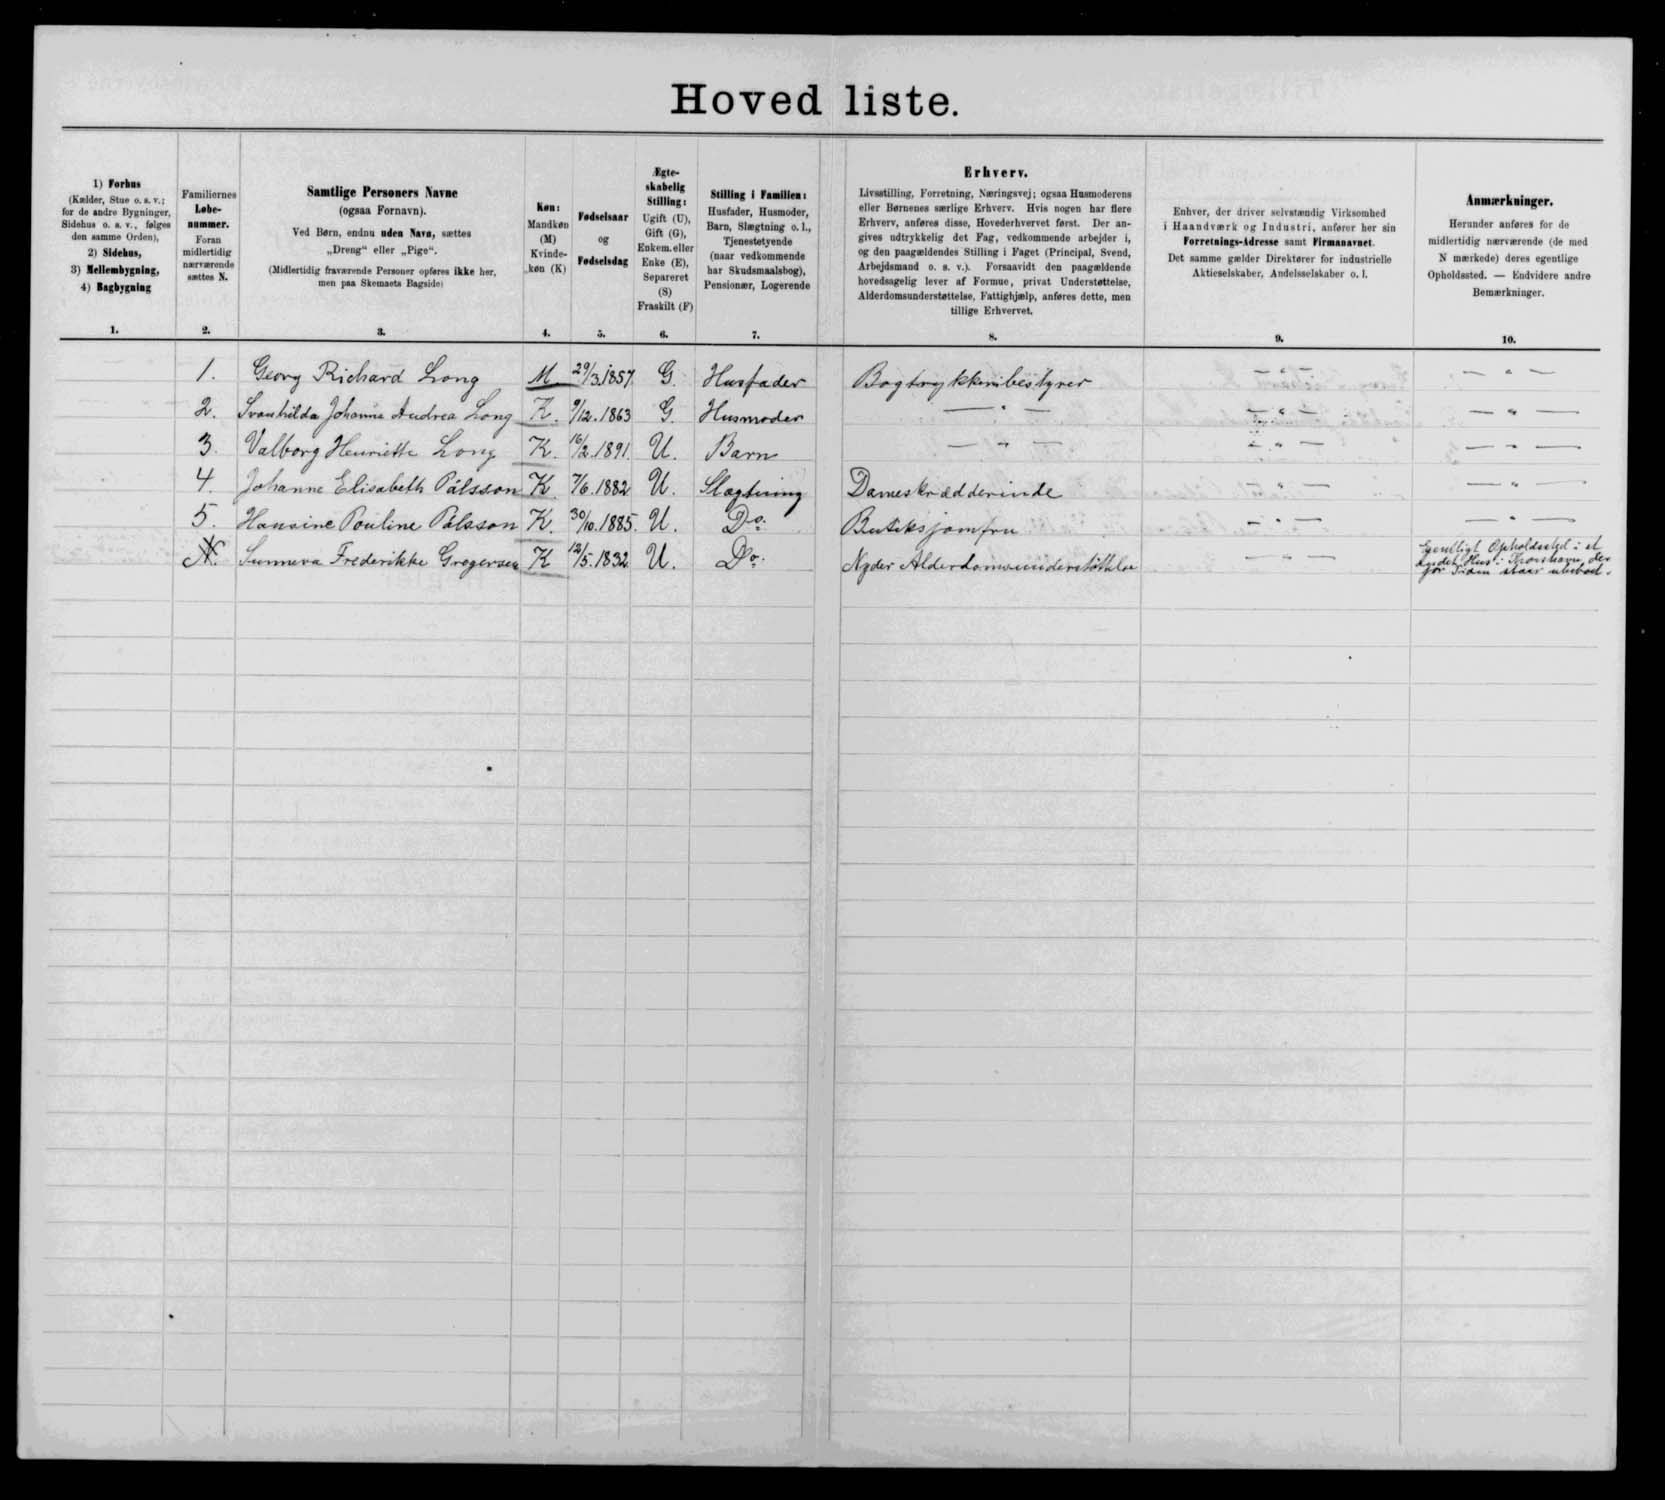 Hoved liste.
1) Forhus
(Kælder, Stue o. s. v.;
for de andre Bygninger,
Sidehus o. s. v., følges
den samme Orden),
2) Sidehus,
3) Mellembygning,
4) Bagbygning
1.
Familiernes
Løbe-
nummer.
Foran
midlertidig
nærværende
sættes N.
2.
Samtlige Personers Navne
(ogsaa Fornavn).
Ved Børn, endnu uden Navn, sættes
„Dreng“ eller „Pige“.
(Midlertidig fraværende Personer opføres ikke her,
men paa Skemaets Bagside)
3.
Køn:
Mandkøn
(M)
Kvinde-
køn (K)
4.
Fødselsaar
og
Fødselsdag
5.
Ægte-
skabelig
Stilling:
Ugift (U),
Gift (G),
Enkem. eller
Enke (E),
Separeret
(S)
Fraskilt (F)
6.
Stilling i Familien:
Husfader, Husmoder,
Barn, Slægtning o. l.,
Tjenestetyende
(naar vedkommende
har Skudsmaalsbog),
Pensionær, Logerende
7.
Erhverv.
Livsstilling, Forretning, Næringsvej; ogsaa Husmoderens
eller Børnenes særlige Erhverv. Hvis nogen har flere
Erhverv, anføres disse, Hovederhvervet først. Der an-
gives udtrykkelig det Fag, vedkommende arbejder i,
og den paagældendes Stilling i Faget (Principal, Svend,
Arbejdsmand o. s. v.). Forsaavidt den paagældende
hovedsagelig lever af Formue, privat Understøttelse,
Alderdomsunderstøttelse, Fattighjælp, anføres dette, men
tillige Erhvervet.
8.
Enhver, der driver selvstændig Virksomhed
i Haandværk og Industri, anfører her sin
Forretnings-Adresse samt Firmanavnet.
Det samme gælder Direktører for industrielle
Aktieselskaber, Andelsselskaber o. l.
9.
Anmærkninger.
Herunder anføres for de
midlertidig nærværende (de med
N mærkede) deres egentlige
Opholdssted. — Endvidere andre
Bemærkninger.
10.
1. Georg Richard Long M. 29/3.1857. G. Husfader Bogtrykkeribestyrer — " — — " —
2. Svanhilda Johanne Andrea Long K. 9/12.1863 G. Husmoder — " — — " — — " —
3. Valborg Henriette Long K. 16/2.1891. U. Barn — " — — " — — " —
4. Johanne Elisabeth Pálsson K. 7/6.1882 U. Slægtning Dameskrædderinde — " — — " —
5. Hansine Pouline Pálsson K. 30/10.1885. U. Do. Butiksjomfru — " — — " —
N. Sunneva Frederikke Gregersen K 12/5.1832 U. Do. Nyder Alderdomsunderstøttelse — " — Egentligt Opholdssted: et
andet Hus i Thorshavn, der
for Tiden staar ubeboet.